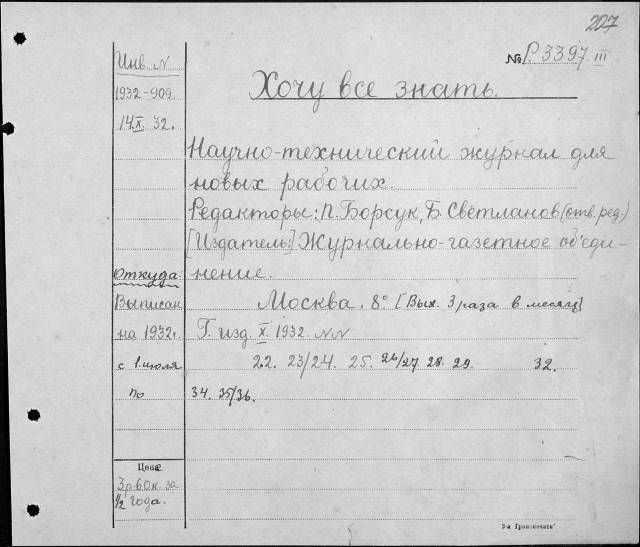 207
№ Р.3397.III
Инв. N
1932-909.
14.X. 32.
Хочу все знать.
Научно-технический журнал для
новых рабочих.
Редакторы: П. Борсук, Б. Светланов (отв. ред.)
[Издатель:] Журнально-газетное объеди-
нение.
Откуда
Выписан
на 1932 г.
с 1. июля
по
Москва. 8° [Вых. 3 раза в месяц]
Г. изд. X. 1932. NN
22. 23/24. 25. 26/27. 28. 29. 32.
34. 35/36.
Цена
3 р. 60 к. за
1/2 года.
5-я Гранпечать